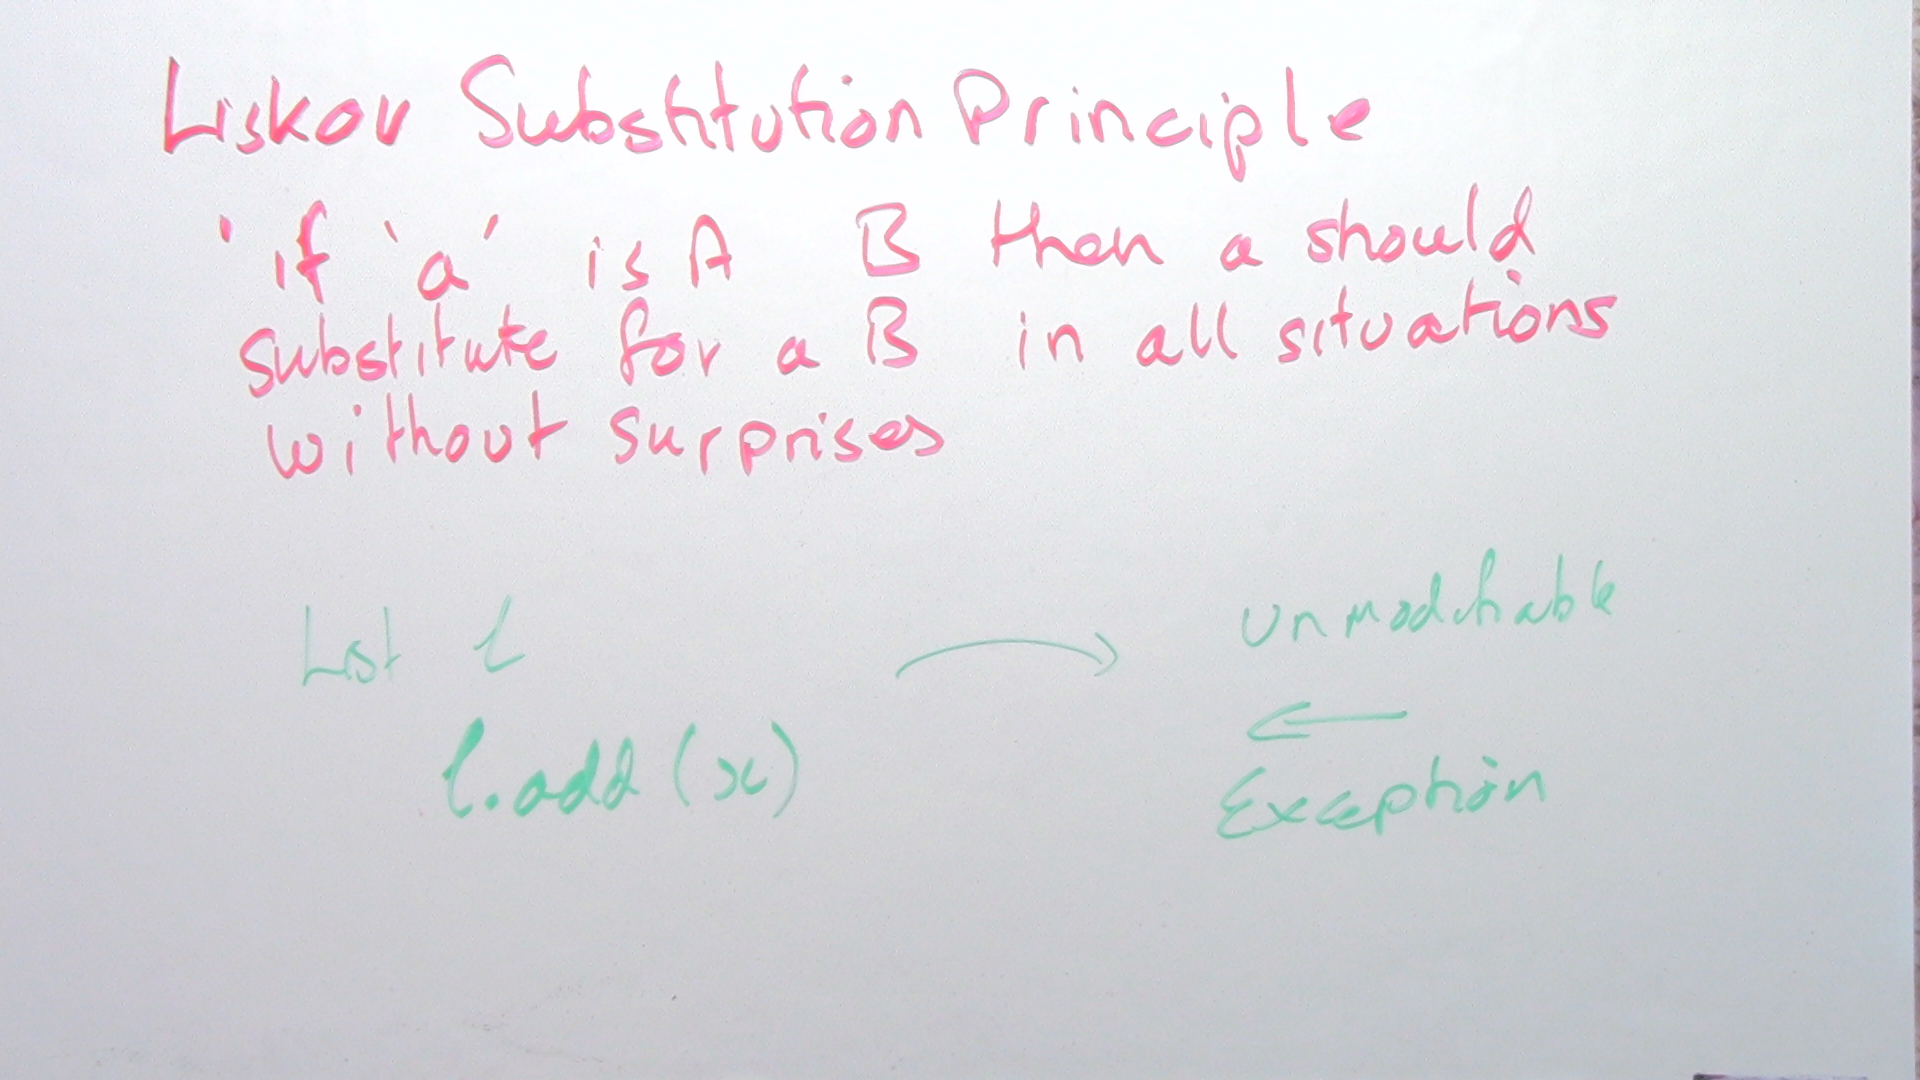 Liskov Substitution Principle
'if 'a' is A B then a should
substitute for a B in all situations
without surprises
List l
unmodifiable
l.add(x)
Exception